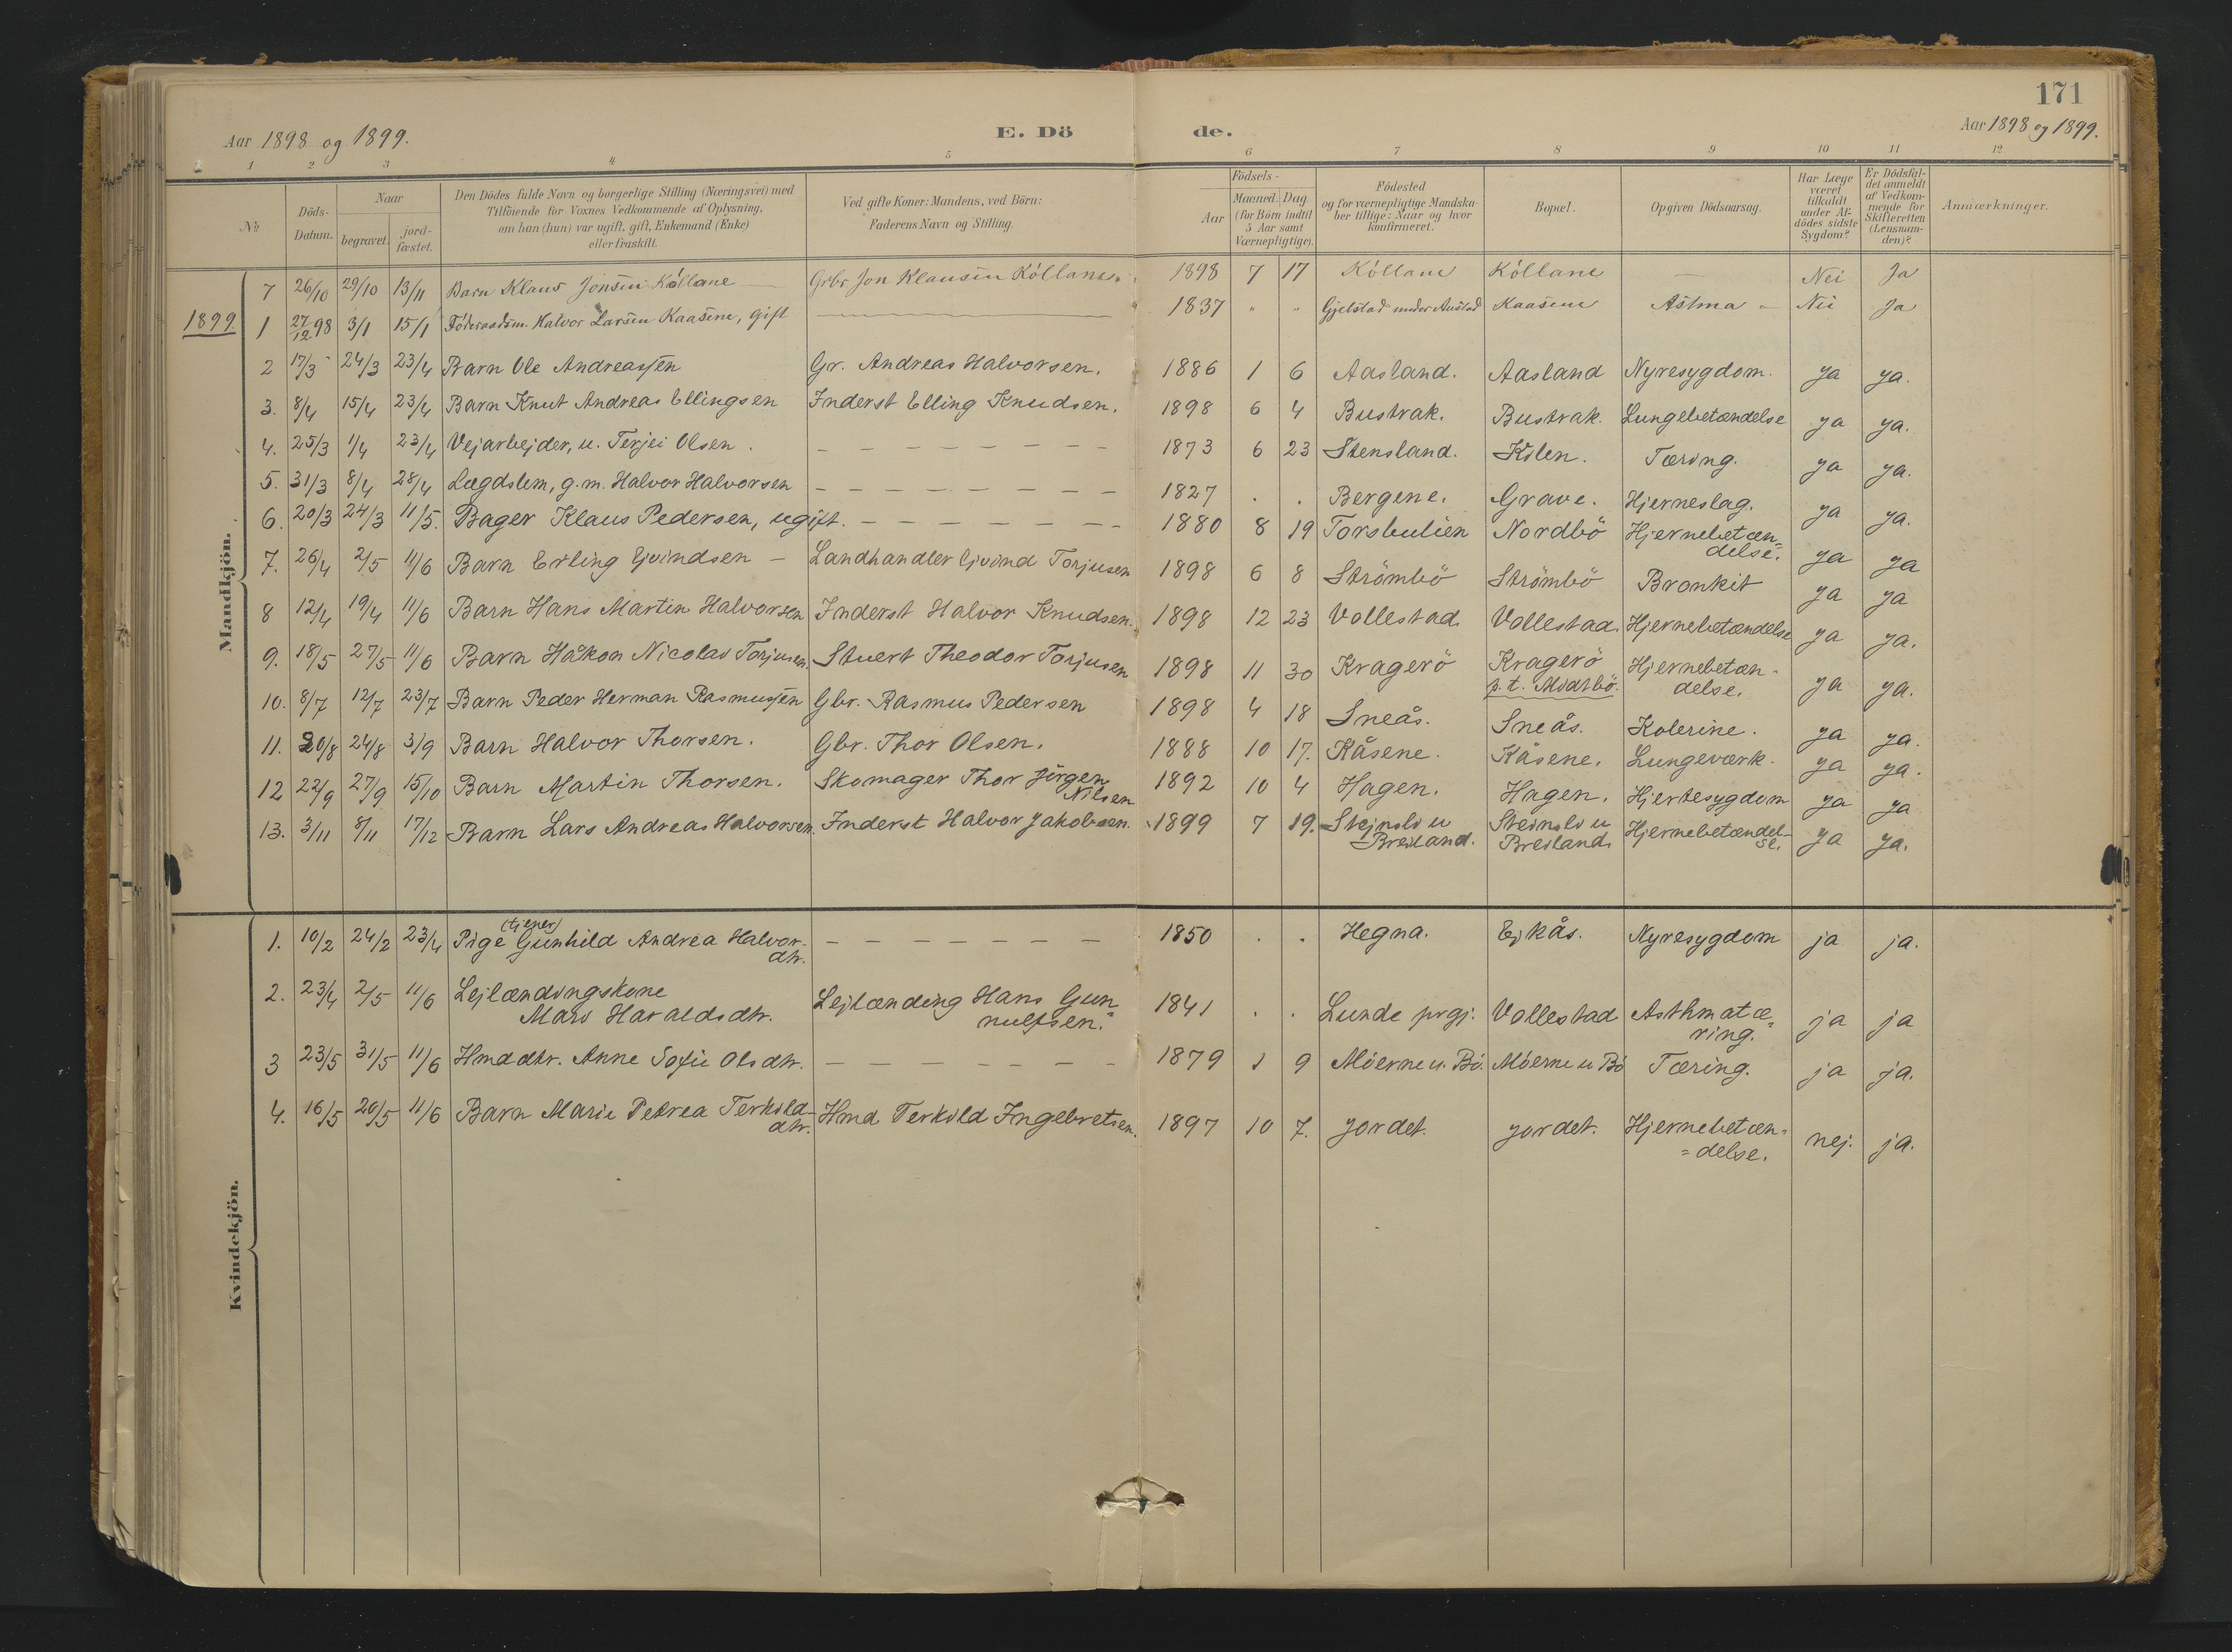 171
Aar 1898 og 1899. E. Dö de. Aar 1898 og 1899.
1 2 3 4 5 6 7 8 9 10 11 12
№
Döds-Datum.
Naar
begravet.
jord-fæstet.
Den Dödes fulde Navn og borgerlige Stilling (Næringsvei) med
Tilföiende for Voxnes Vedkommende af Oplysning,
om han (hun) var ugift, gift, Enkemand (Enke)
eller fraskilt.
Ved gifte Koner: Mandens, ved Börn:
Faderens Navn og Stilling.
Födsels-
Aar
Maaned. Dag
(for Börn indtil
5 Aar samt
Værnepligtige).
Födested
og for værnepligtige Mandska-
ber tillige: Naar og hvor
konfirmeret.
Bopæl.
Opgiven Dödsaarsag.
Har Læge
været
tilkaldt
under Af-
dödes sidste
Sygdom?
Er Dödsfal-
det anmeldt
af Vedkom-
mende for
Skifteretten
(Lensman-
den)?
Anmærkninger.
Mandkjön.
7 26/10 29/10 13/11 Barn Klaus Jonsen Kóllane Grbr. Jon Klausen Kóllane. 1898 7 17 Kóllane Kóllane — Nei Ja
1899. 1 27/12 98 3/1 15/1 Föderaadsm. Halvor Larsen Kaasene, gift — 1837 " " Gjelstad under Austad Kaasene Astma - Nei Ja
2 17/3 24/3 23/4 Barn Ole Andreassen Gr. Andreas Halvorsen. 1886 1 6 Aasland. Aasland Nyresygdom. ja ja.
3. 8/4 15/4 23/4 Barn Knut Andreas Ellingsen Inderst Elling Knudsen. 1898 6 4 Bustrak. Bustrak. Lungebetændelse ja ja.
4. 25/3 1/4 23/4 Vejarbejder, u. Terjei Olsen. - - - - - - - - 1873 6 23 Stensland. Kilen. Tæring. ja ja.
5. 31/3 8/4 28/4 Lægdslem, g.m. Halvor Halvorsen - - - - - - - - 1827 . . Bergene. Grave. Hjerneslag. ja ja.
6. 20/3 24/3 11/5. Bager Klaus Pedersen, ugift. - - - - - - - - 1880 8 19 Torsbulien Nordbö Hjernebetæn=
delse. ja ja
7. 26/4 2/5 11/6 Barn Erling Ejvindsen - Landhandler Ejvind Torjusen 1898 6 8 Strömbö Strömbö Bronkit ja ja
8 12/4 19/4 11/6 Barn Hans Martin Halvorsen Inderst Halvor Knudsen. 1898 12 23 Vollestad. Vollestad. Hjernebetændelse ja ja.
9. 18/5 27/5 11/6 Barn Håkon Nicolas Torjusen. Stuert Theodor Torjusen 1898 11 30 Kragerö Kragerö Hjernebetæn-
p.t. delse. ja ja.
10. 8/7 12/7 23/7 Barn Peder Herman Rasmussen Gbr. Rasmus Pedersen 1898 4 18 Sneås. Sneås. Kolerine. ja ja.
11. 20/8 24/8 3/9 Barn Halvor Thorsen. Gbr. Thor Olsen. 1888 10 17. Kåsene. Kåsene. Lungeværk. ja ja.
12 22/9 27/9 15/10 Barn Martin Thorsen. Skomager Thor Jörgen
Nilsen 1892 10 4 Hagen. Hagen. Hjertesygdom ja ja
13. 3/11 8/11 17/12 Barn Lars Andreas Halvorsen. Inderst Halvor Jakobsen. 1899 7 19. Stejnsli u Steinsli u Hjernebetændel-
Breiland. Breiland. se. ja ja.
Kvindekjön.
(tjener)
1. 10/2 24/2 23/4 Pige Gunhild Andrea Halvor-
dtr. - - - - - - - 1850 . . Hegna. Ejkås. Nyresygdom ja ja.
2. 23/4 2/5 11/6 Lejlændingskone Lejlænding Hans Gun=
Mari Haraldsdtr. nulfsen. 1841 . . Lunde prgj. Vollestad Asthmatæ=
ring. ja ja
3 23/5 31/5 11/6 Hmd dtr. Anne Sofie Olsdtr. - - - - - - - 1879 1 9 Móerne u. Bö. Móerne u Bö Tæring. ja ja.
4. 16/5 20/5 11/6 Barn Marie Petrea Terkild-
dtr. Hmd Terkild Ingebretsen. 1897 10 7. Jordet. Jordet. Hjernebetæn=
=delse. nej. ja.